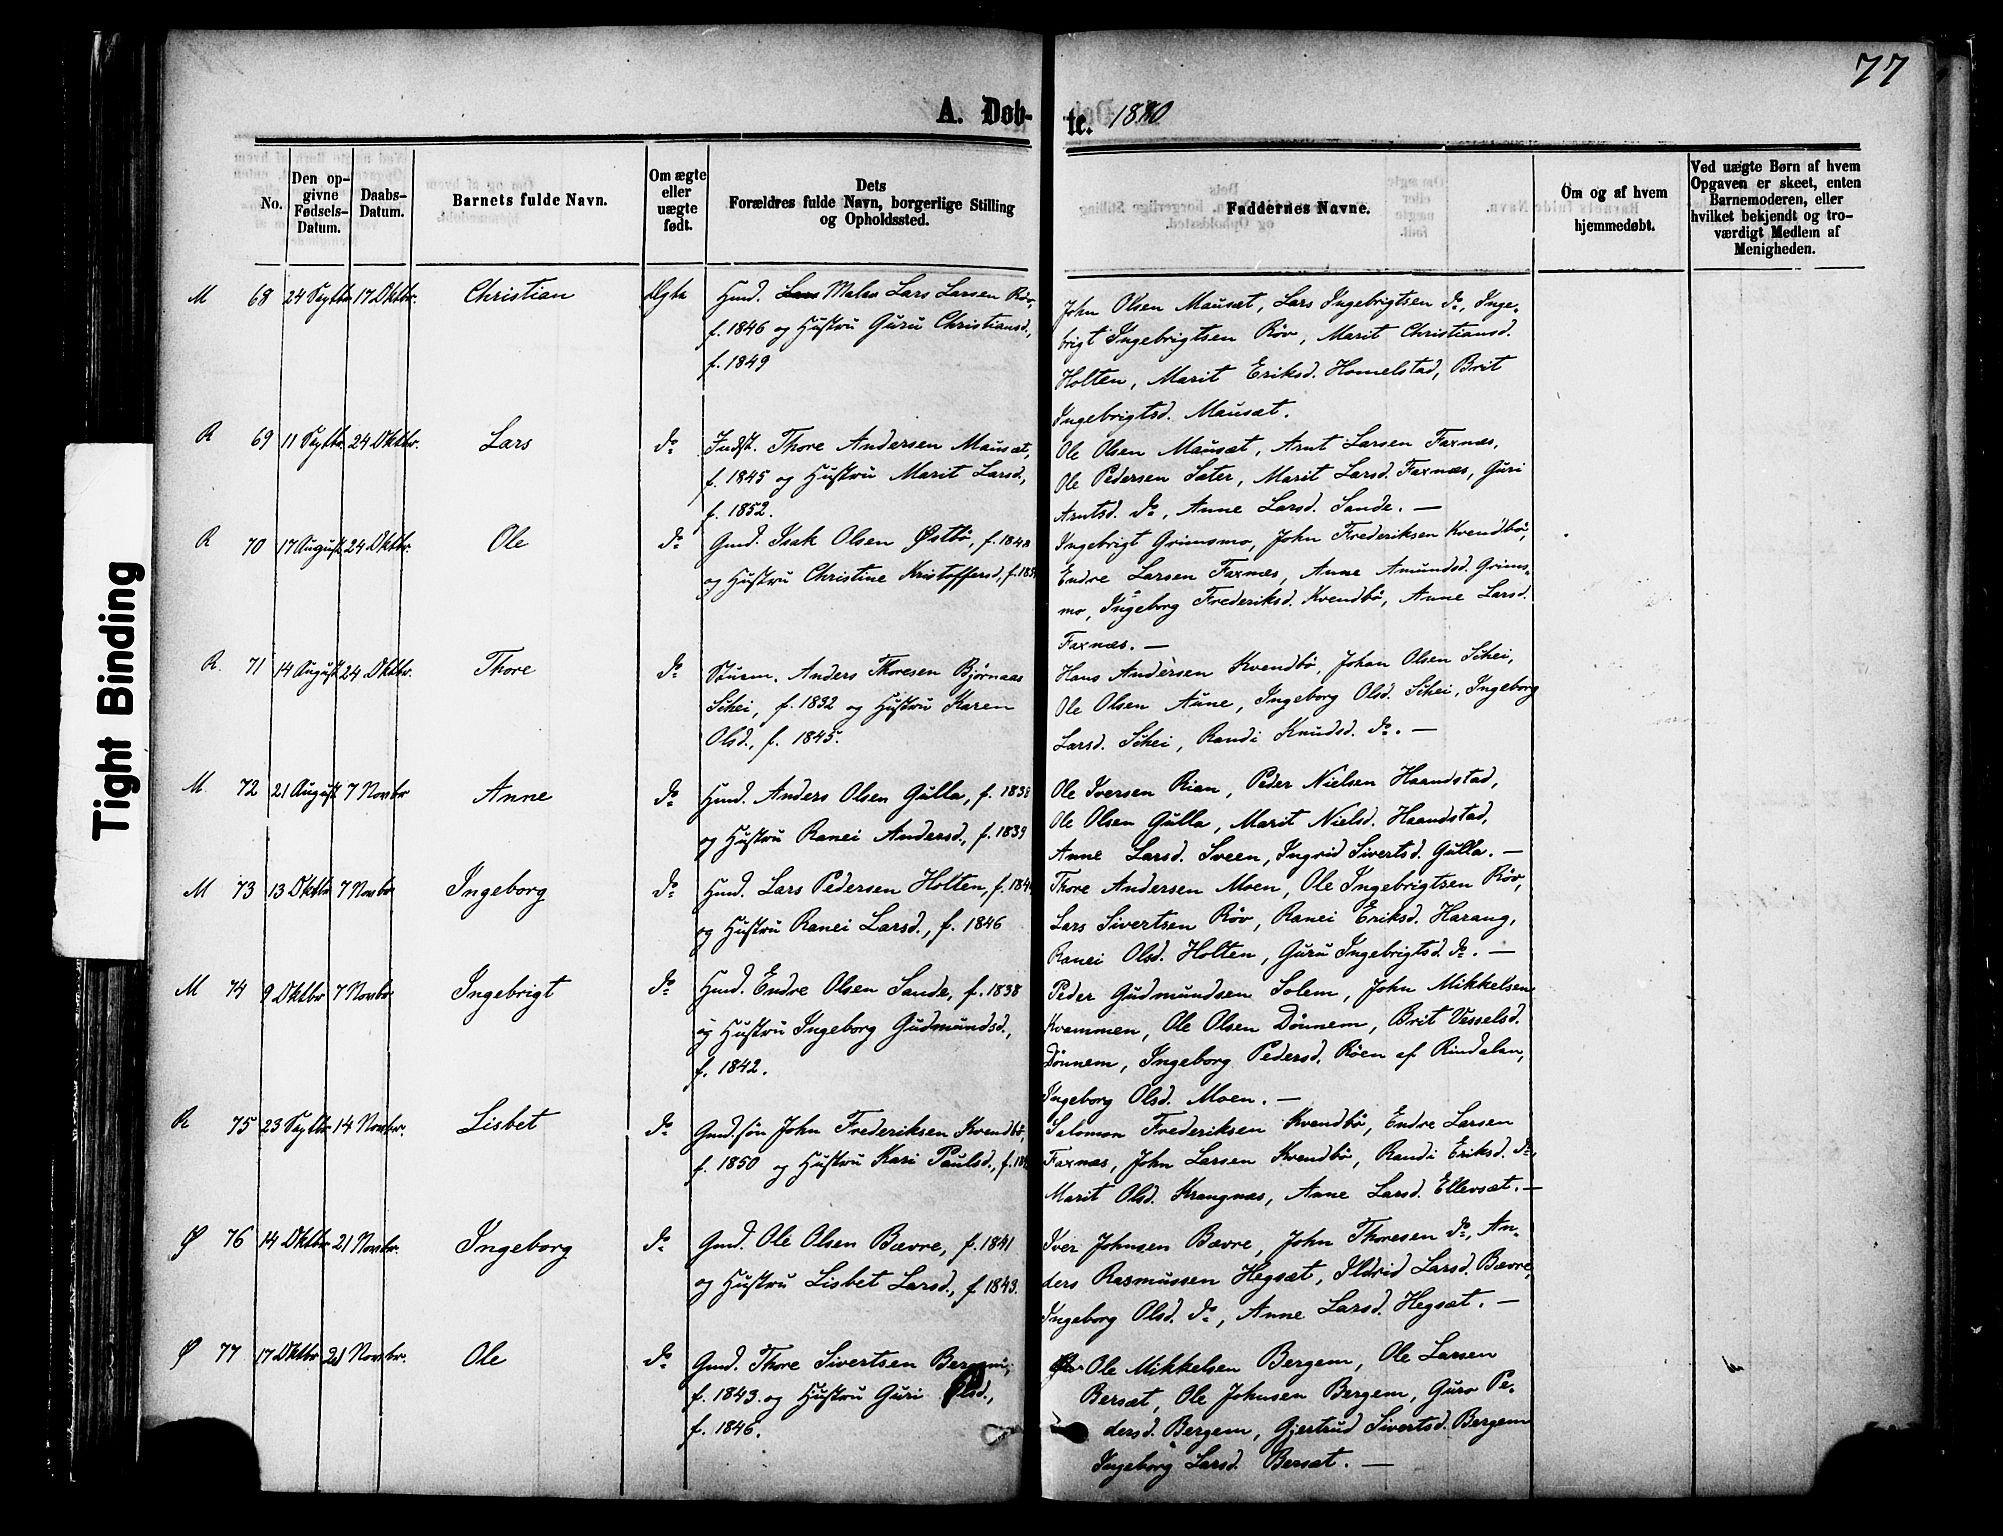 77
A. Døb-
te. 1880
No.
Den op-
givne
Fødsels-
Datum.
Daabs-
Datum.
Barnets fulde Navn.
Om ægte
eller
uægte
født.
Dets
Forældres fulde Navn, borgerlige Stilling
og Opholdssted.
Faddernes Navne.
Om og af hvem
hjemmedøbt.
Ved uægte Børn af hvem
Opgaven er skeet, enten
Barnemoderen, eller
hvilket bekjendt og tro-
værdigt Medlem af
Menigheden.
M 68 24 Septbr 17 Oktbr. Christian Ægte
Hmd. Lars Larsen Røv,
f. 1846 og Hustru Guru Christiansd.,
f. 1849
John Olsen Mausæt, Lars Ingebrigtsen do, Inge-
brigt Ingebrigtsen Røv, Marit Christiansd.
Holten, Marit Eriksd. Homelstad, Brit
Ingebrigtsd. Mausæt.
R 69 11 Septbr. 24 Oktbr. Lars do
Indst. Thore Andersen Mausæt,
f. 1845 og Hustru Marit Larsd.,
f. 1852.
Ole Olsen Mausæt, Arnt Larsen Faxnæs,
Ole Pedersen Sæter, Marit Larsd. Faxnæs, Guri
Arntsd. do, Anne Larsd. Sande. —
R 70 17 August 24 Oktbr. Ole do
Gmd. Isak Olsen Østbö, f. 1848
og Hustru Christine Kristoffersd., f. 185
Ingebrigt Grimsmo, John Frederiksen Kvendbö,
Endre Larsen Faxnæs, Anne Amundsd. Grims-
mo, Ingeborg Frederiksd. Kvendbö, Anne Larsd.
Faxnæs. —
R. 71 14 August 24 Oktbr. Thore do
Anders Thoresen Bjørnaas
Schei, f. 1832 og Hustru Karen
Olsd., f. 1845.
Hans Andersen Kvendbö, Johan Olsen Schei,
Ole Olsen Aune, Ingeborg Olsd. Schei, Ingeborg
Larsd. Schei, Randi Knudsd. do. —
M 72 21 August 7 Novbr Anne do
Hmd. Anders Olsen Gulla, f. 1838
og Hustru Ranei Andersd., f. 1839
Ole Iversen Rian, Peder Nielsen Haandstad,
Ole Olsen Gulla, Marit Nielsd. Haandstad,
Anne Larsd. Sveen, Ingrid Sivertsd. Gulla. —
M 73 13 Oktbr 7 Novbr Ingeborg do
Hmd. Lars Pedersen Holten, f. 184
og Hustru Ranei Larsd., f. 1846
Thore Andersen Moen, Ole Ingebrigtsen Röv,
Lars Sivertsen Röv, Ranei Eriksd. Harang,
Ranei Olsd. Holten, Guru Ingebrigtsd. do. —
M 74 9 Oktbr 7 Novbr Ingebrigt do
Hmd. Endre Olsen Sande, f. 1838
og Hustru Ingeborg Gudmundsd.,
f. 1842.
Peder Gudmundsen Solem, John Mikkelsen
Kvammen, Ole Olsen Dönnem, Brit Vesselsd.
Dönnem, Ingeborg Pedersd. Röen af Rindalen,
Ingeborg Olsd. Moen. —
R 75 23 Septbr 14 Novbr. Lisbet do
Gmd.sön John Frederiksen Kvendbö,
f. 1850 og Hustru Kari Paulsd., f. 18
Salomon Frederiksen Kvendbö, Endre Larsen
Faxnæs, John Larsen Kvendbö, Randi Eriksd. do,
Marit Olsd. Krangnæs, Anne Larsd. Ellevsæt. —
Ø 76 14 Oktbr 21 Novbr. Ingeborg do
Gmd. Ole Olsen Bævre, f. 1841
og Hustru Lisbet Larsd., f 1843.
Iver Johnsen Bævre, John Thoresen do, An-
ders Rasmussen Hegsæt, Ildrid Larsd. Bævre,
Ingeborg Olsd. do, Anne Larsd. Hegsæt. —
Ø 77 17 Oktbr 21 Novbr. Ole do
Gmd. Thore Sivertsen Bergem,
f. 1843. og Hustru Guri Olsd.,
f. 1846.
Ole Mikkelsen Bergem, Ole Larsen
Bersæt, Ole Johnsen Bergem, Guro Pe-
dersd. Bergem, Gjertrud Sivertsd. Bergem
Ingeborg Larsd. Bersæt. —
Tight Binding